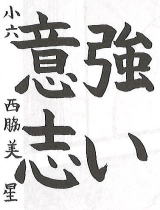 強い
意志
小六 西脇美星